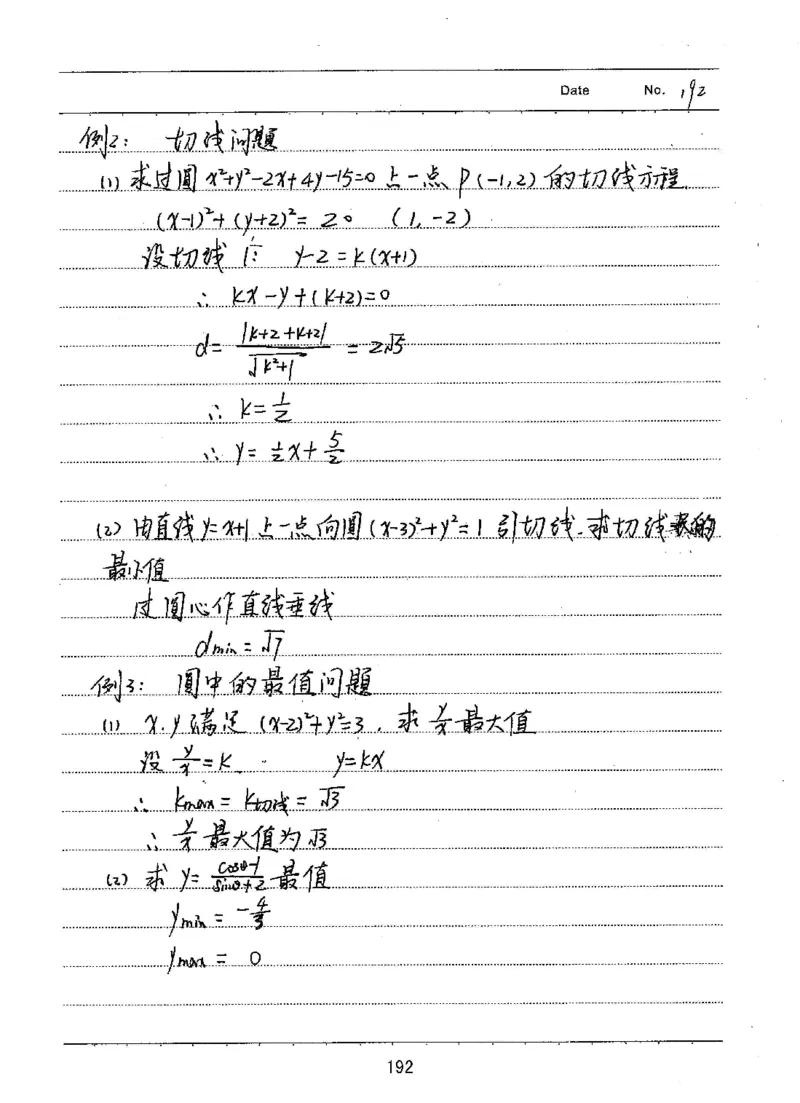 Date No. 192
例2: 切线问题
(1) 求过圆 x²+y²-2x+4y-15=0 上一点 P(-1,2) 的切线方程.
(x-1)²+(y+2)²=20 (1,-2)
设切线 l: y-2=k(x+1)
∴ kx-y+(k+2)=0
d= |k+2+k+2| / √(k²+1) = 2√5
∴ k=1/2
∴ y=1/2x+5/2
(2) 由直线 y=x+1 上一点向圆 (x-3)²+y²=1 引切线.求切线的
最小值
过圆心作直线垂线
dmin=√7
例3: 圆中的最值问题
(1) x.y 满足 (x-2)²+y²=3. 求 y/x 最大值
设 y/x=k. y=kx
∴ kmax=k切线=√3
∴ y/x 最大值为√3
(2) 求 y= (cosθ-1)/(sinθ+2) 最值
ymin = -4/3
ymax = 0
192